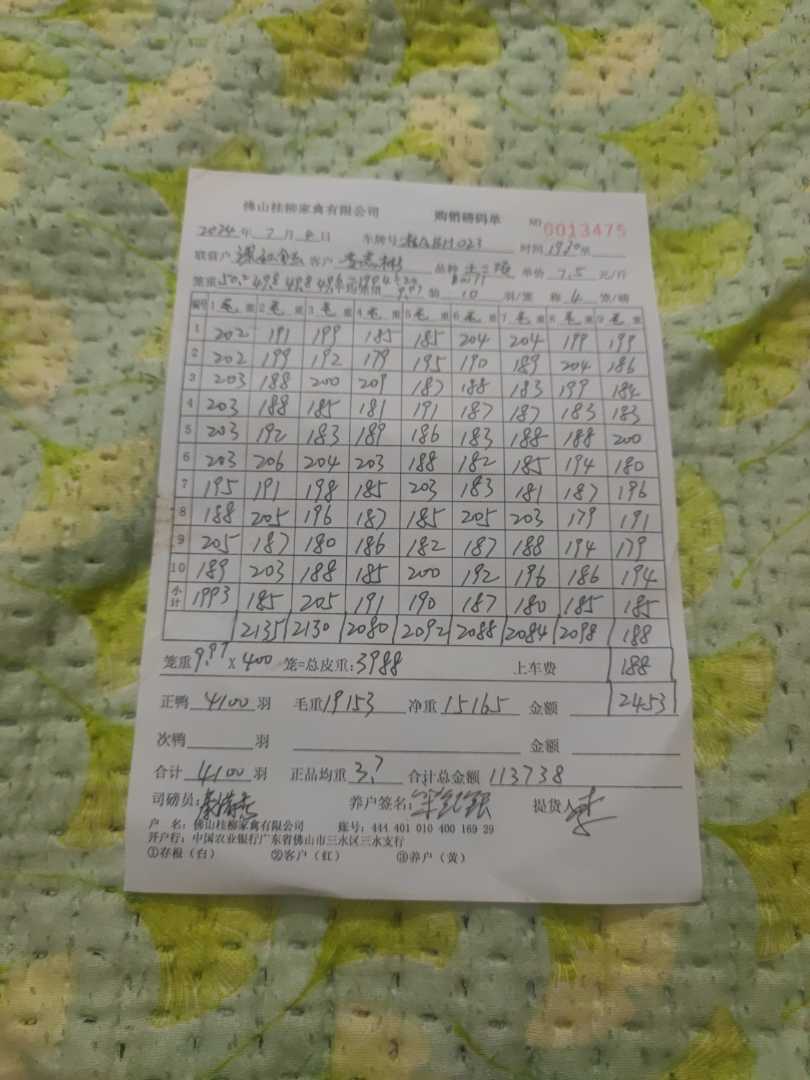 佛山桂柳家禽有限公司 购销磅码单 NO 0013475
2024年 7月 日 车牌号 H023 时间
联营户 客户 品种 单价 7.5 元/斤
笼重 50.2 49.8 49.8 9.97 装 10 羽/笼 称 4 笼/磅
编号 1 毛 重 2 毛 重 3 毛 重 4 毛 重 5 毛 重 6 毛 重 7 毛 重 8 毛 重 9 毛 重
1 202 191 199 185 185 204 204 199 199
2 202 199 192 179 195 190 189 204 186
3 203 188 200 209 187 188 183 199 184
4 203 188 185 181 191 187 187 183 183
5 203 192 183 189 186 183 188 188 200
6 203 206 204 203 188 182 185 194 180
7 195 191 198 185 203 183 181 187 196
8 188 205 196 187 185 205 203 179 191
9 205 187 180 186 182 187 188 194 179
10 189 203 188 185 200 192 196 186 194
小计 1993 185 205 191 190 187 180 185 185
2135 2130 2080 2092 2088 2084 2098 188
笼重 9.97 × 400 笼=总皮重:3988 上车费 188
正鸭 4100 羽 毛重 19153 净重 15165 金额 2453
次鸭 羽 金额
合计 4100 羽 正品均重 3.7 合计总金额 113738
司磅员: 养户签名: 提货人
户 名:佛山桂柳家禽有限公司 账号:444 401 010 400 169 29
开户行:中国农业银行广东省佛山市三水区三水支行
①存根(白) ②客户(红) ③养户(黄)